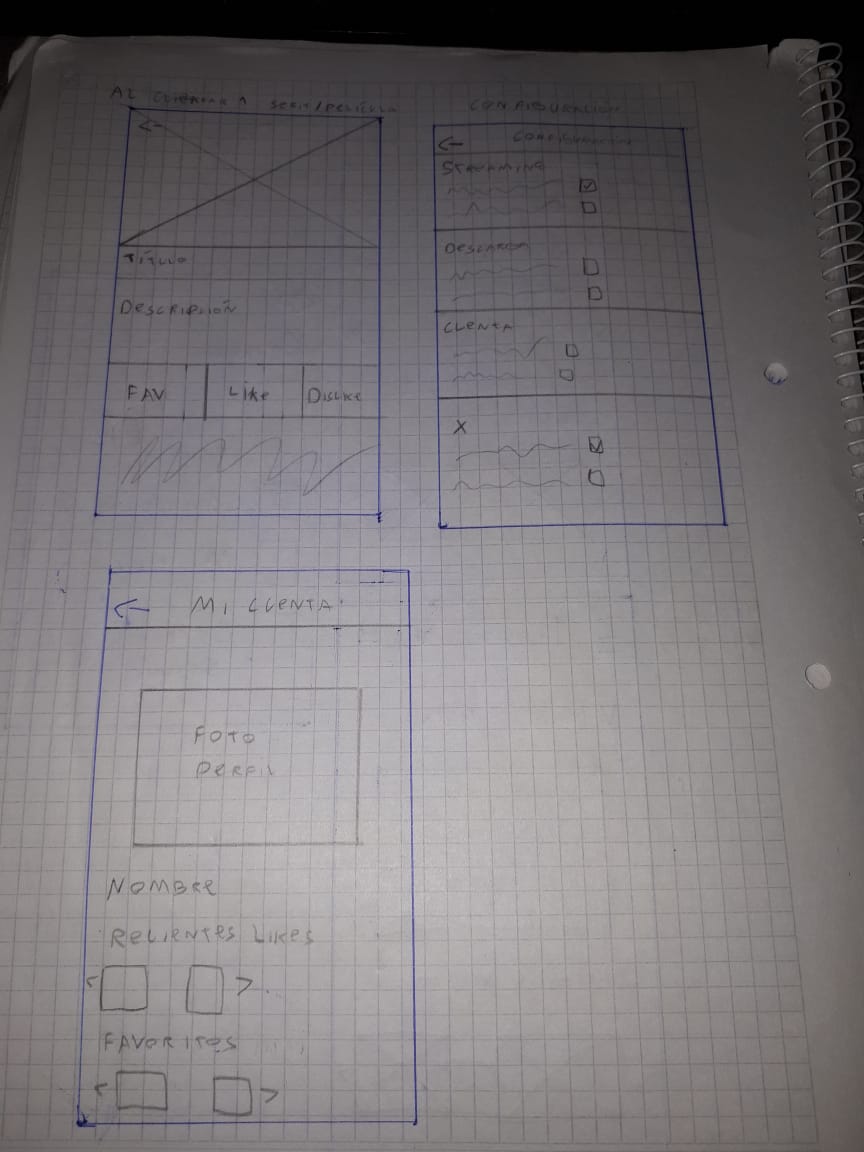 AL CLICKEAR A SERIE/PELÍCULA
←
TÍTULO
DESCRIPCIÓN
FAV LIKE DISLIKE
CONFIGURACION
← CONFIGURACION
STREAMING
DESCARGA
CUENTA
X
← MI CUENTA
FOTO
PERFIL
NOMBRE
RECIENTES LIKES
< >
FAVORITOS
< >